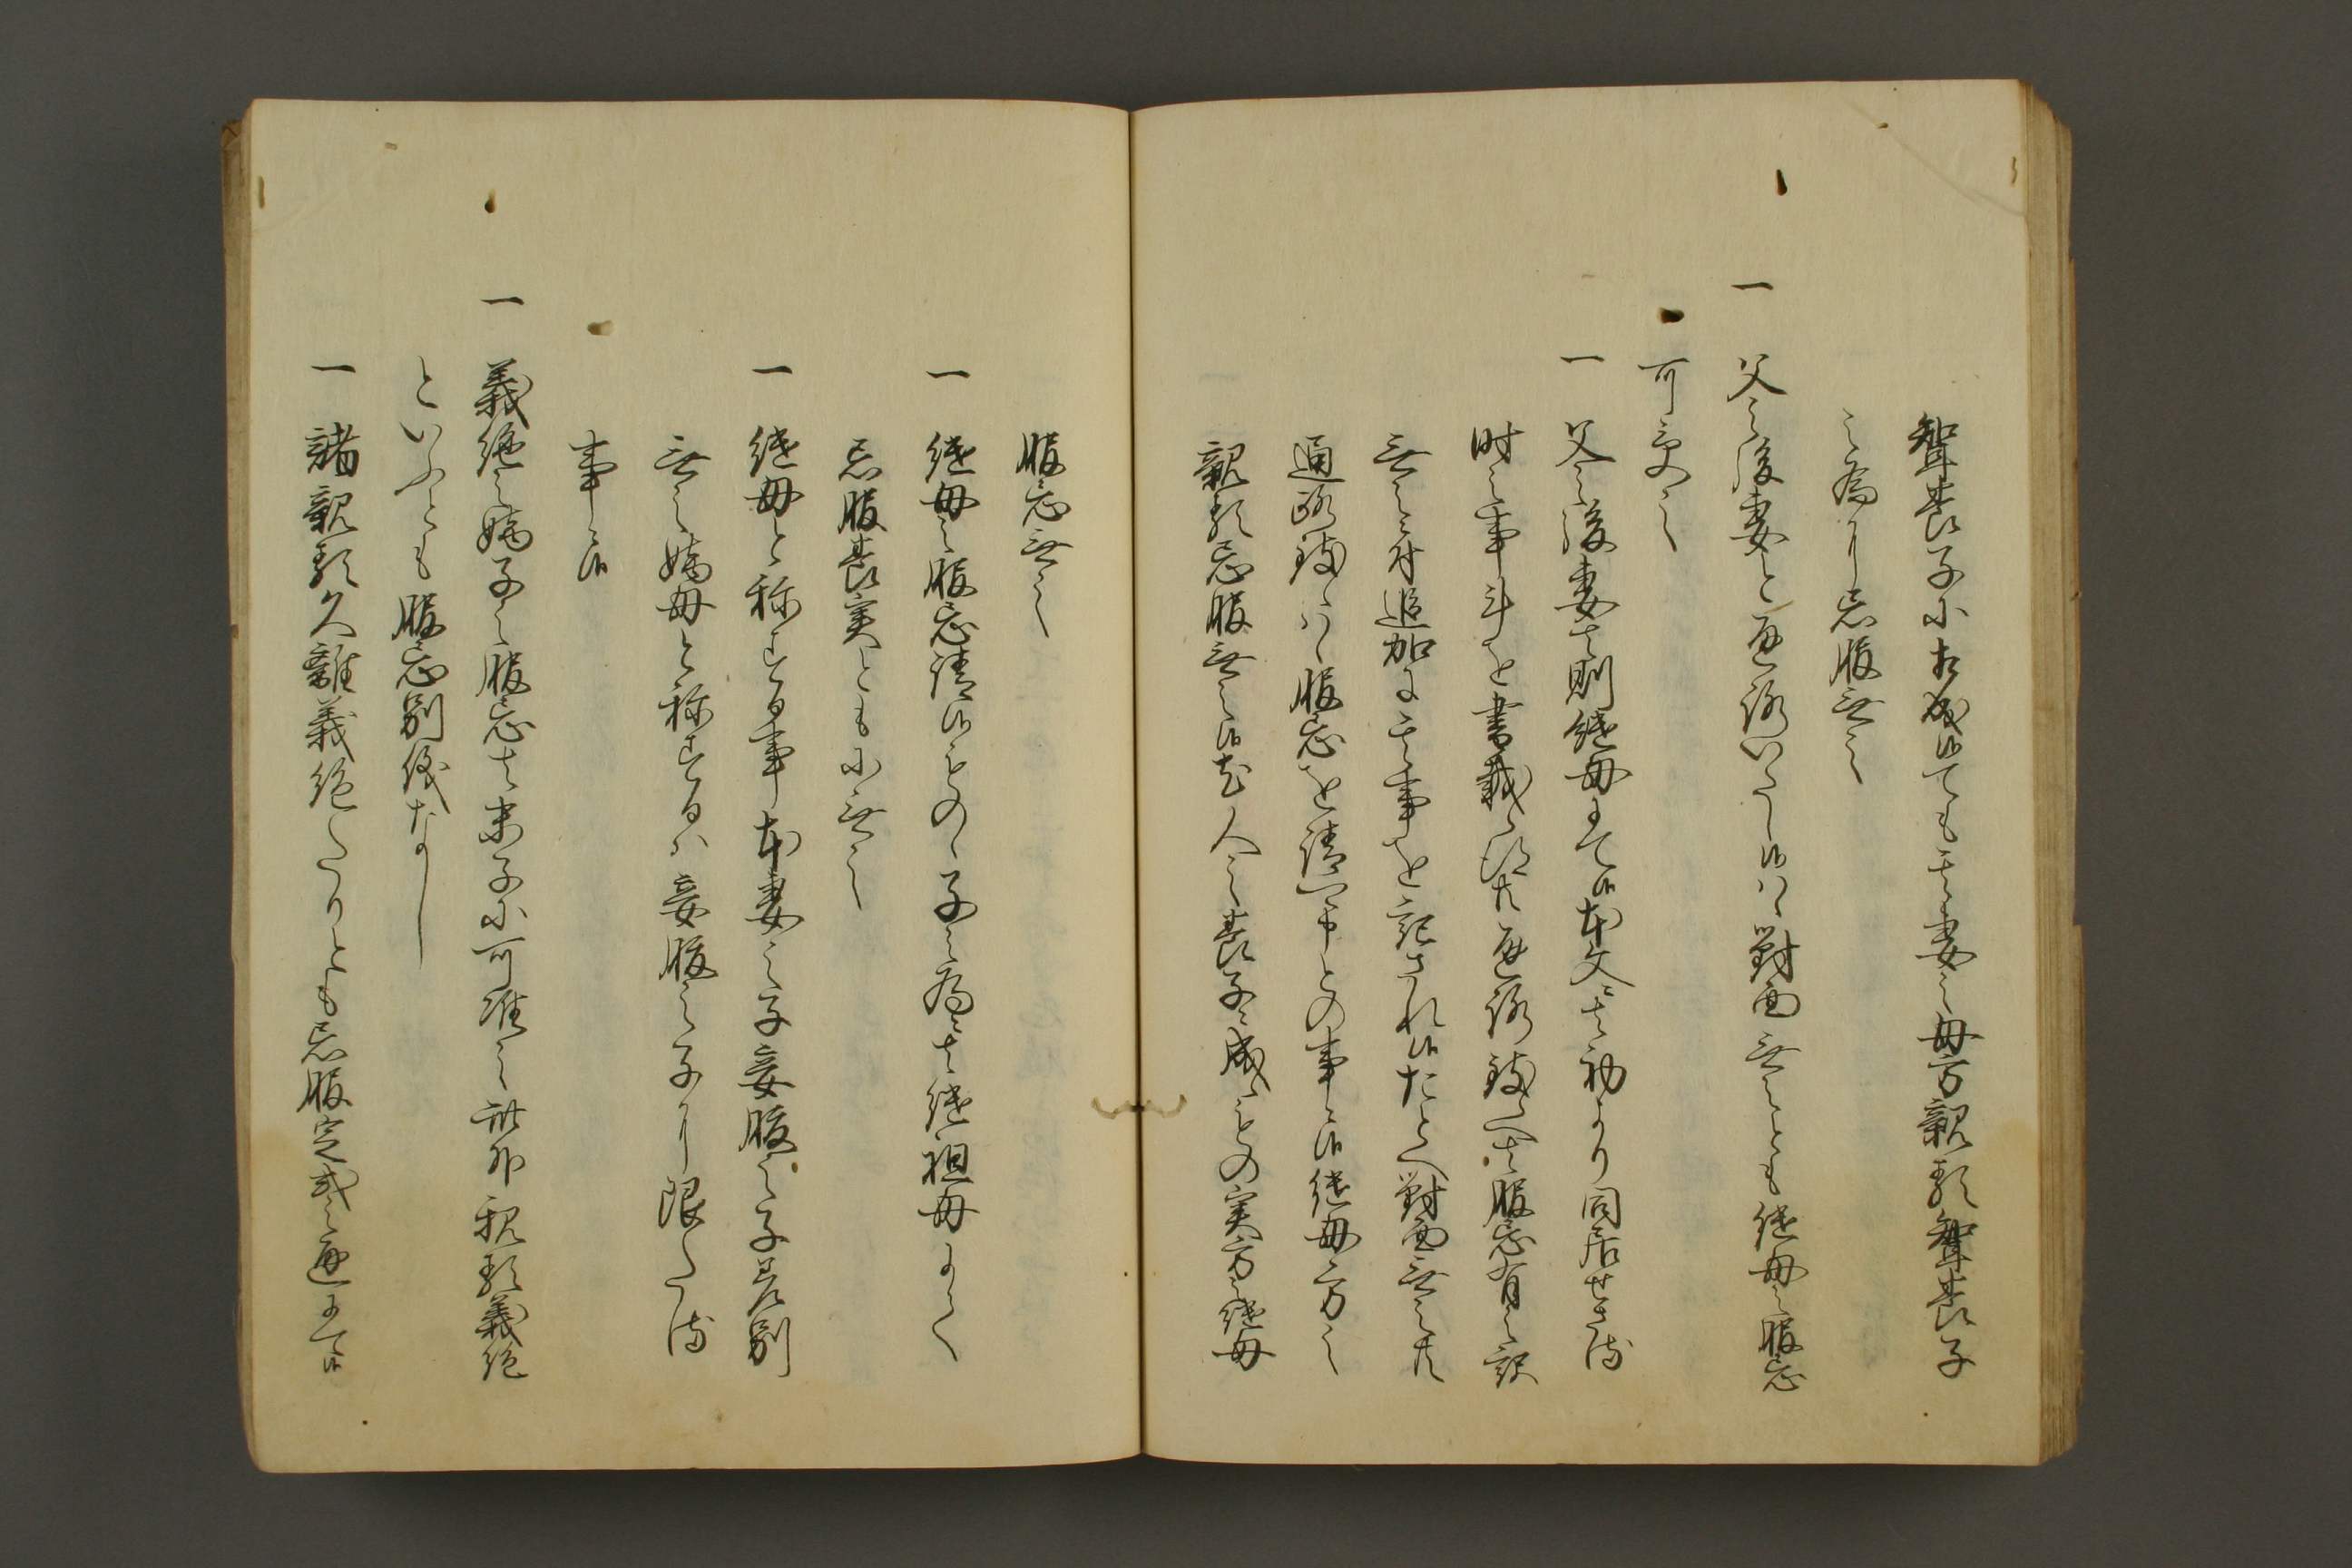 聟養子に相成候ても其妻之母方親類聟養子
之為に忌服無之
一 父之後妻と通路いたし候ハヽ対面無之とも継母之服忌
可受之
一 父之後妻者則継母にて候本文者初より同居せさる
時之事斗を書載候得共通路致候へ者服忌有之訳
無之ニ付追加に其事を記され候たとへ対面無之共
通路致候ハヽ服忌を請可申との事ニ候継母方之
親類忌服無之候尤人之養子ニ成候もの実方之継母
服忌無之
一 継母之服忌請候もの子之為ニ者継祖母にて
忌服養実ともに無之
一 継母と称する事本妻之子妾腹之子差別
無之嫡母と称するハ妾腹之子に限たる
事ニ候
一 義絶之嫡子之服忌者末子に可准之此外親類義絶
といふとも服忌別儀なし
一 諸親類久離義絶たりとも忌服定式之通にて候